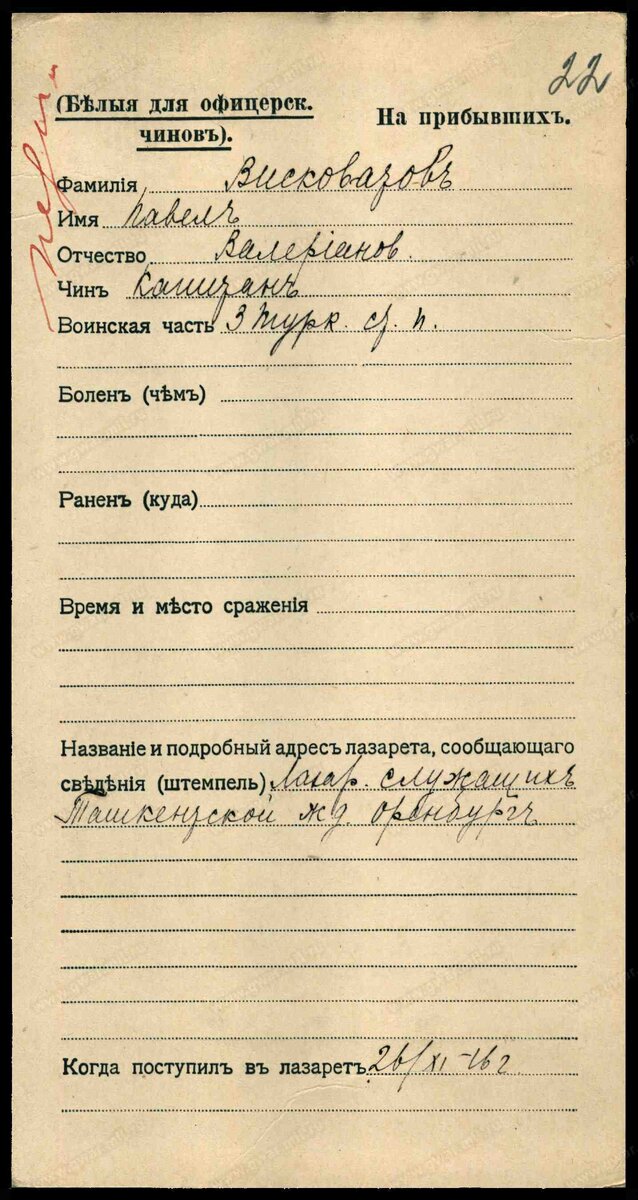 22
(Бѣлыя для офицерск.
чиновъ).
На прибывшихъ.
Фамилія Висковатовъ
Имя Павелъ
Отчество Валеріанов.
Чинъ Капитанъ
Воинская часть 3 Турк. ст. п.
Боленъ (чѣмъ)
Раненъ (куда)
Время и мѣсто сраженія
Названіе и подробный адресъ лазарета, сообщающаго
свѣдѣнія (штемпель) Лазар. служащихъ
Ташкентской ж д. Оренбургъ
Когда поступилъ въ лазаретъ 26/XI-16 г.